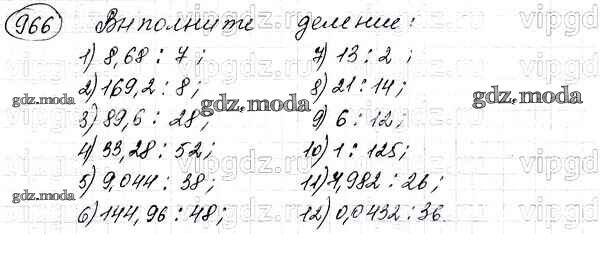 966 Выполните деление:
1) 8,68 : 7;
2) 169,2 : 8;
3) 89,6 : 28;
4) 33,28 : 52;
5) 9,044 : 38;
6) 144,96 : 48;
7) 13 : 2;
8) 21 : 14;
9) 6 : 12;
10) 1 : 125;
11) 4,982 : 26;
12) 0,0432 : 36.
gdz.moda
gdz.moda
gdz.moda
gdz.moda
vipgdz